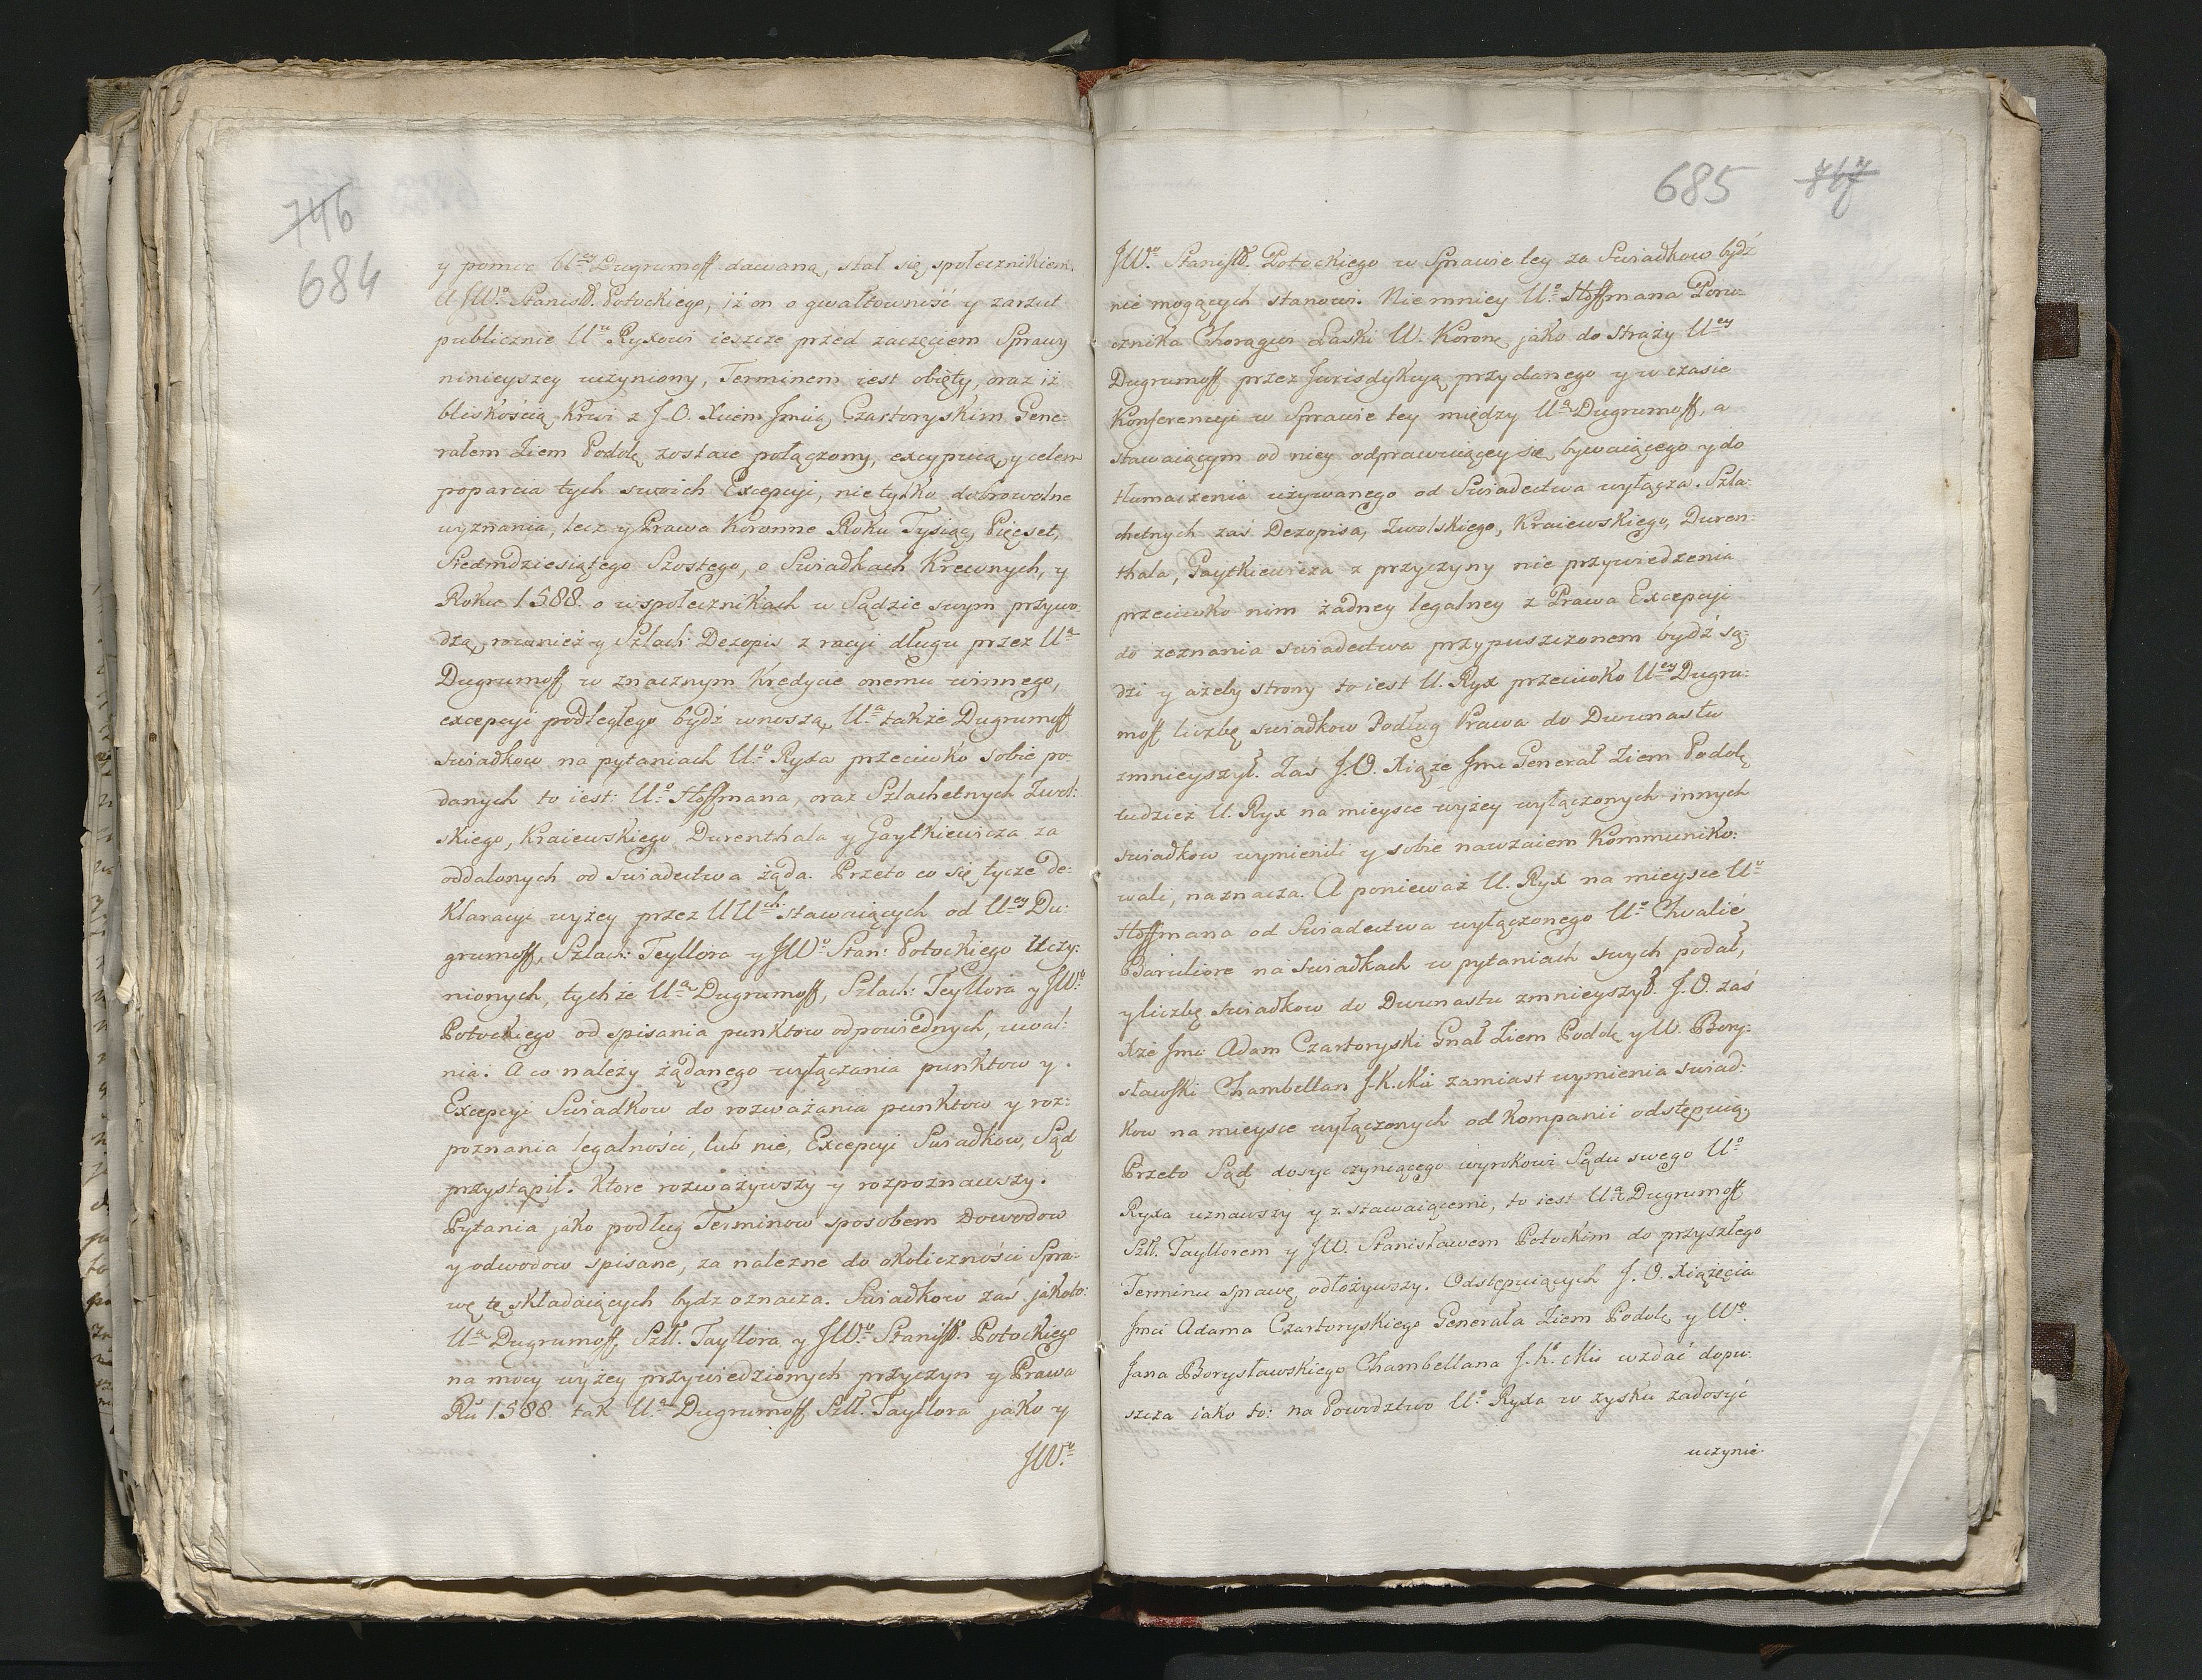 746
684
y pomoc U<sup>ey</sup> Dugrumoff dawaną, stał się społecznikiem.
A JW<sup>o</sup> Stanisł. Potockiego, iż on o gwałtowność y zarzut
publicznie U<sup>u</sup> Ryxowi ieszcze przed zaczęciem Sprawy
ninieyszey uczyniony, Terminem iest obięty, oraz iż
bliskością krwi z J.O. Xciem Jmcią Czartoryskim Gene:
rałem Ziem Podolę zostaie połączony, excypuią, y celem
poparcia tych swoich Excepcyi, nie tylko dobrowolne
wyznania, lecz y Prawa Koronne Roku Tysiąc, Pięcset,
Siedmdziesiątego Szostego, o Swiadkach Krewnych, y
Roku 1588. o wspołecznikach w Sądzie swym przywo:
dzą, rownież y Szlach: Dezopis z racyi długu przez U<sup>a</sup>
Dugrumoff w znacznym Kredycie onemu winnego,
excepcyi podległego bydź wnoszą, U<sup>a</sup> także Dugrumoff
swiadkow na pytaniach U<sup>o</sup> Ryxa przeciwko sobie po:
danych to iest: U<sup>o</sup> Hoffmana, oraz Szlachetnych Zwol:
skiego, Kraiewskiego Durenthala y Gaytkiewicza za
oddalonych od swiadectwa żąda. Przeto co się tycze de:
klaracyi wyżey przez UU<sup>ch</sup> stawaiących od U<sup>ey</sup> Du:
grumoff, Szlach: Teyllora y JW<sup>o</sup> Stan: Potockiego uczy:
nionych, tychże U<sup>a</sup> Dugrumoff, Szlach: Teyllora y JW<sup>o</sup>
Potockiego od spisania punktow odpowiednych, uwal:
nia. A co należy żądanego wyłączania punktow y
Excepcyi Swiadkow do rozważania punktow y roz:
poznania legalności, lub nie, Excepcyi Swiadkow, Sąd
przystąpił. Ktore rozważywszy y rozpoznawszy.
Pytania jako podług Terminow sposobem Dowodow
y odwodow spisane, za należne do okoliczności Spra:
wę tę składaiących bydz oznacza. Swiadkow zaś jakoto:
U<sup>a</sup> Dugrumoff, Szll. Tayllora y JW<sup>o</sup> Stanisł<sup>o</sup> Potockiego
na mocy wyżey przywiedzionych przyczyn y Prawa
Ru 1588 tak U<sup>a</sup> Dugrumoff, Szll. Tayllora jako y
JW<sup>o</sup>
685 747
JW<sup>o</sup> Stanisł. Potockiego w Sprawie tey za Swiadkow bydź
nie mogących stanowi. Niemniey U<sup>o</sup> Hoffmana Poru:
cznika Chorągwi Laski W. Koronę jako do straży U<sup>ey</sup>
Dugrumoff przez Jurisdykcyą przydanego y w czasie
Konferencyi w Sprawie tey między U<sup>ą</sup> Dugrumoff, a
stawaiącym od niey odprawuiącey się, bywaiącego y do
tłumaczenia używanego od Swiadectwa wyłącza. Szla:
chetnych zaś Dezopisa, Zwolskiego, Kraiewskiego, Duren:
thala, Gaytkiewicza z przyczyny nie przywiedzenia
przeciwko nim żadney legalney z Prawa Excepcyi
do zeznania swiadectwa przypuszczonem bydź są:
dzi y ażeby strony to iest U. Ryx przeciwko U<sup>ey</sup> Dugru:
moff liczbę swiadkow Podług Prawa do Dwunastu
zmnieyszył. Zaś J.O. Xiąże Jmc Generał Ziem Podolę
tudzież U. Ryx na mieysce wyżey wyłączonych innych
swiadkow wymienili y sobie nawzaiem Kommuniko:
wali, naznacza. A ponieważ U. Ryx na mieysce U<sup>o</sup>
Hoffmana od Swiadectwa wyłączonego U<sup>o</sup> Chvalié
Bariliore na swiadkach w pytaniach swych podał,
y liczbę swiadkow do Dwunastu zmnieyszył. J.O. zaś
Xże Jmć Adam Czartoryski Gnał Ziem Podolę y W. Bory:
sławski Chambellan J.K.Mci zamiast wymienia swiad:
kow na mieysce wyłączonych od kompanii odstępuią.
Przeto Sąd dosyc czyniącego wyrokowi Sądu swego U<sup>o</sup>
Ryxa uznawszy y z stawaiącemi, to iest U<sup>ą</sup> Dugrumoff
Szll. Tayllorem y JW. Stanisławem Potockim do przyszłego
Terminu sprawę odłożywszy. Odstępuiących J.O. Xiążęcia
Jmci Adama Czartoryskiego Generała Ziem Podolę y W<sup>o</sup>
Jana Borysławskiego Chambellana J.K. Mci wzdać dopu:
szcza iako to: na Powodztwo U<sup>o</sup> Ryxa w zysku zadosyć
uczynie